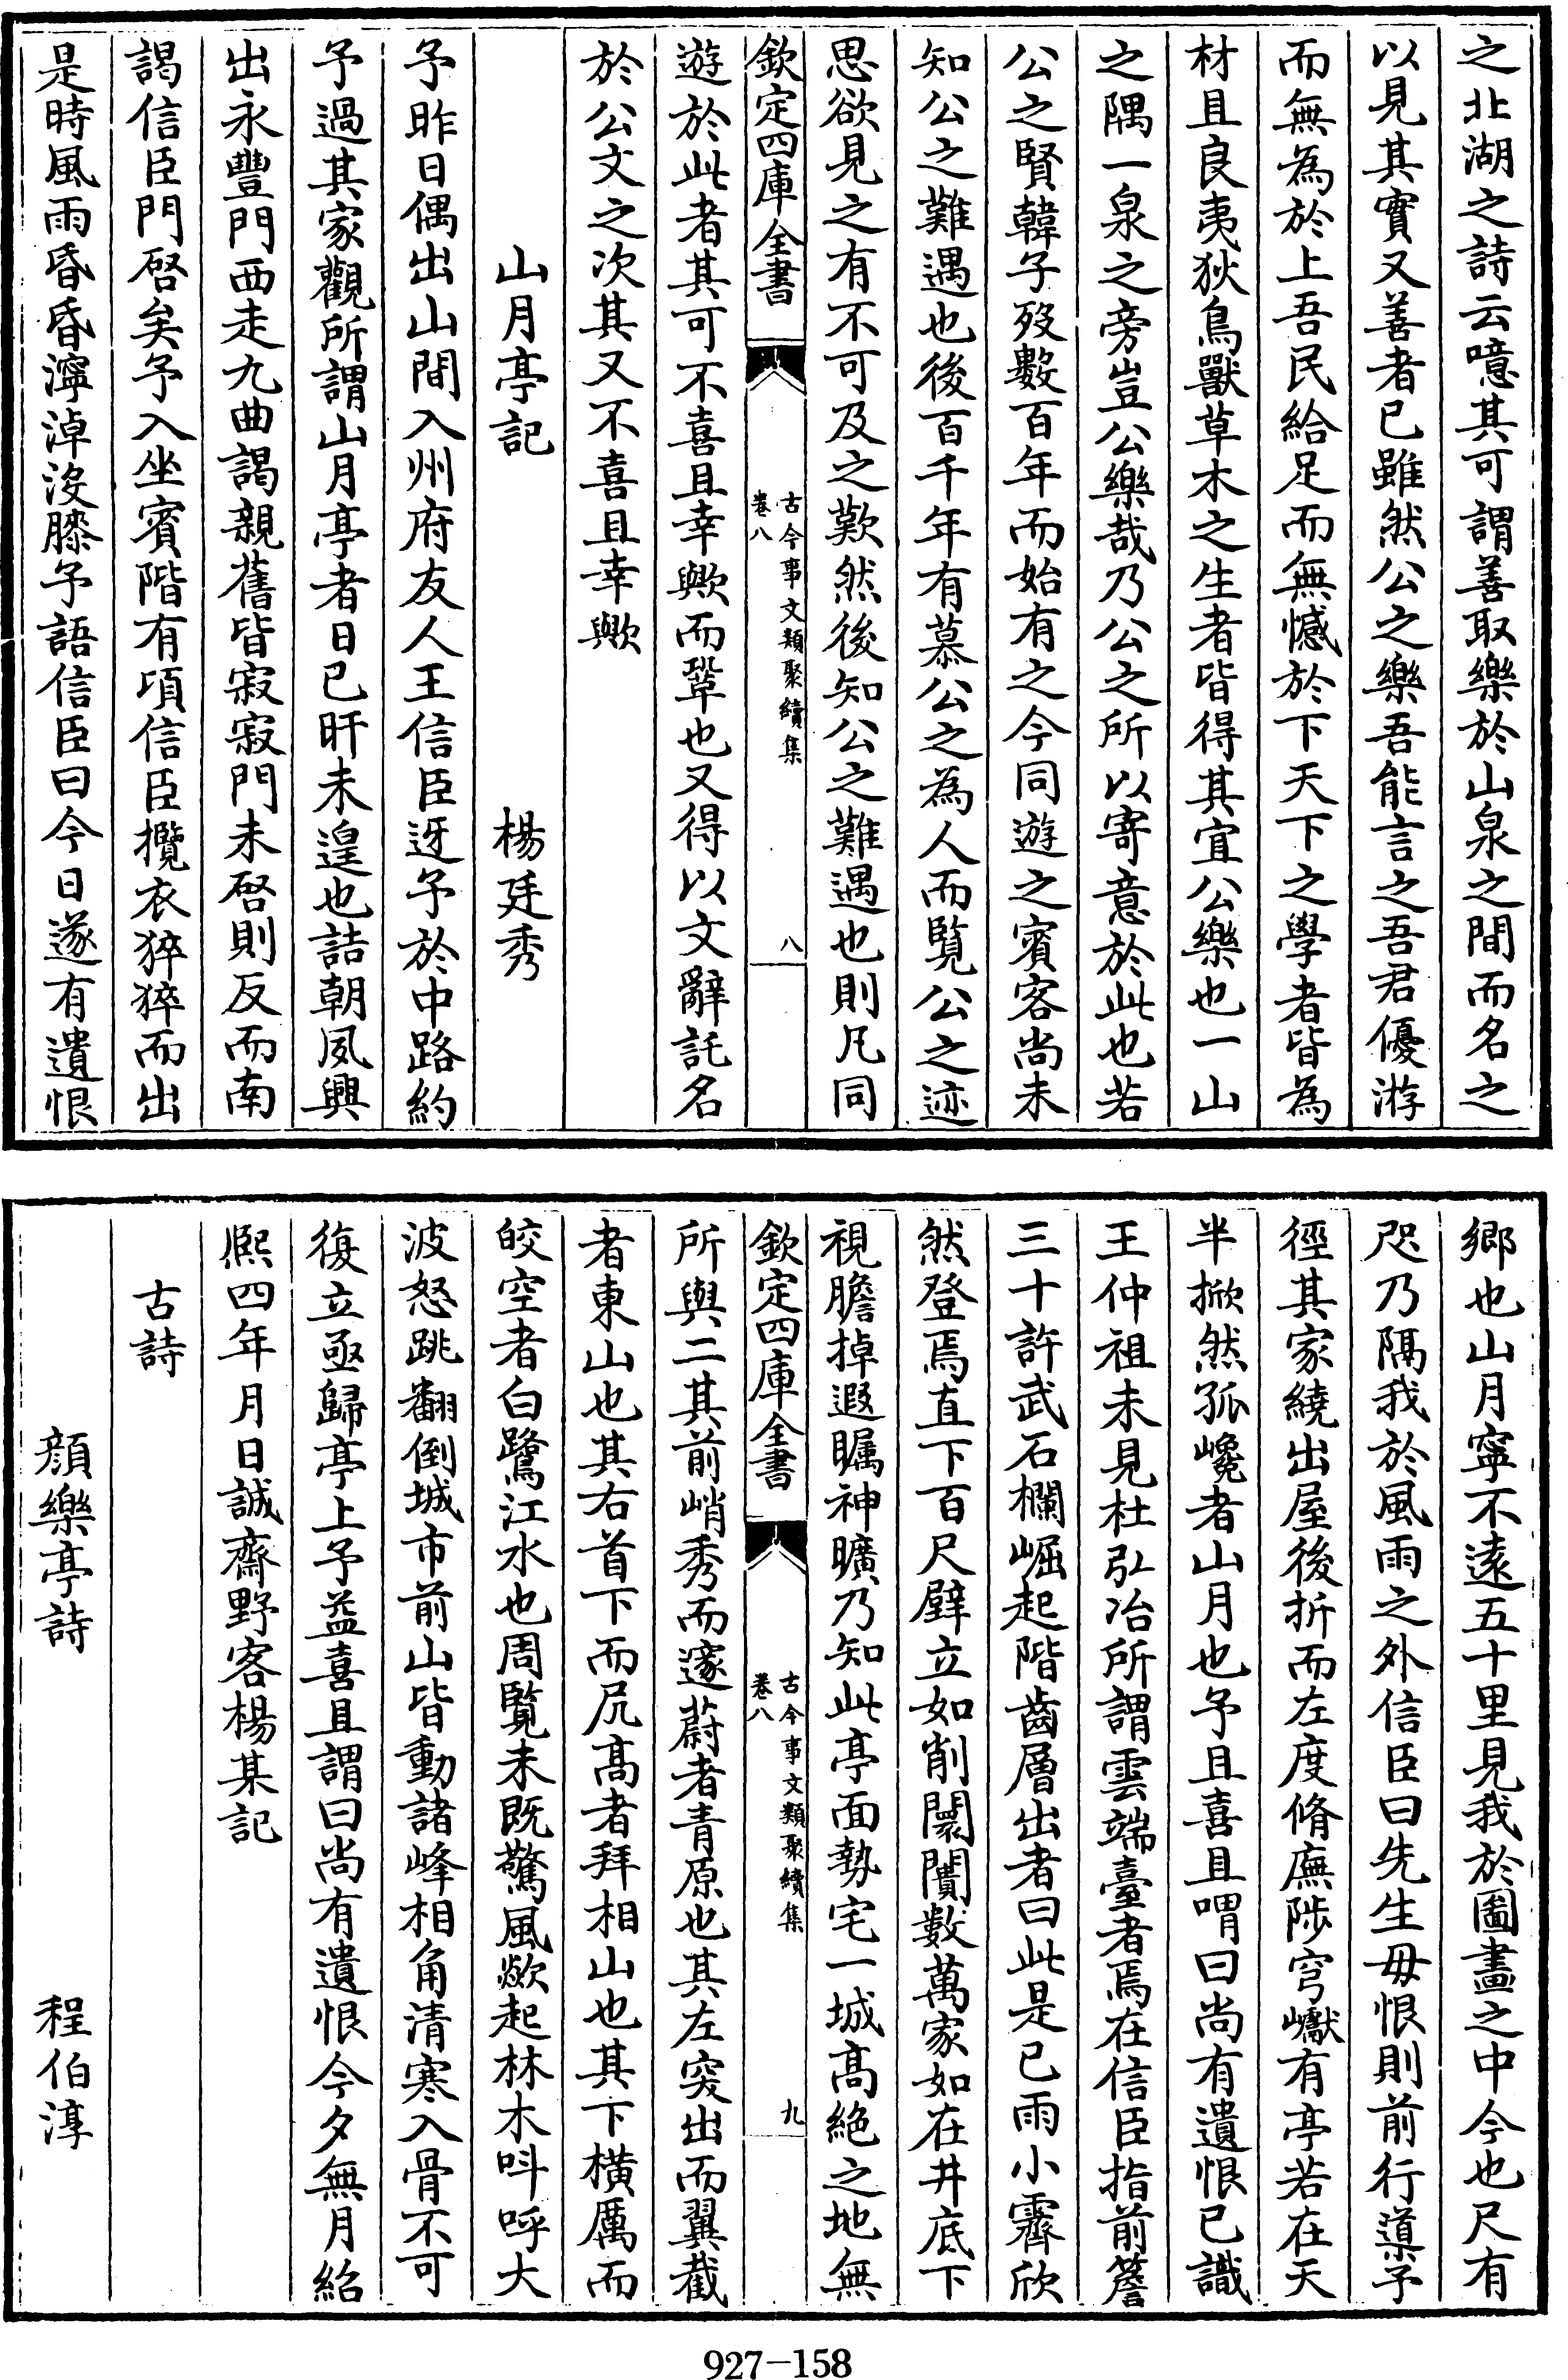 之北湖之詩云噫其可謂善取樂於山泉之間而名之
以見其實又善者已雖然公之樂吾能言之吾君優游
而無為於上吾民給足而無憾於下天下之學者皆為
材且良夷狄鳥獸草木之生者皆得其宜公樂也一山
之隅一泉之旁豈公樂哉乃公之所以寄意於此也若
公之賢韓子歿數百年而始有之今同遊之賓客尚未
知公之難遇也後百千年有慕公之為人而覽公之迹
思欲見之有不可及之歎然後知公之難遇也則凡同
欽定四庫全書
古今事文類聚續集
卷八
八
遊於此者其可不喜且幸歟而鞏也又得以文辭託名
於公文之次其又不喜且幸歟
山月亭記 楊廷秀
予昨日偶出山間入州府友人王信臣迓予於中路約
予過其家觀所謂山月亭者日已旰未遑也詰朝夙興
出永豐門西走九曲謁親舊皆寂寂門未啓則反而南
謁信臣門啓矣予入坐賓階有頃信臣攬衣猝猝而出
是時風雨昏昏濘淖沒膝予語信臣曰今日遂有遺恨
鄉也山月寧不遠五十里見我於圖畫之中今也尺有
咫乃隔我於風雨之外信臣曰先生毋恨則前行導予
徑其家繞出屋後折而左度脩廡陟穹巘有亭若在天
半掀然孤巉者山月也予且喜且喟曰尚有遺恨已識
王仲祖未見杜弘冶所謂雲端臺者焉在信臣指前簷
三十許武石欄崛起階齒層出者曰此是已雨小霽欣
然登焉直下百尺壁立如削闤闠數萬家如在井底下
視膽掉遐矚神曠乃知此亭面勢宅一城高絶之地無
欽定四庫全書
古今事文類聚續集
卷八
九
所與二其前峭秀而邃蔚者青原也其左突出而翼截
者東山也其右首下而尻高者拜相山也其下橫厲而
皎空者白鷺江水也周覽未既驚風歘起林木呌呼大
波怒跳翻倒城市前山皆動諸峰相角清寒入骨不可
復立亟歸亭上予益喜且謂曰尚有遺恨今夕無月紹
熙四年月日誠齋野客楊某記
古詩
顏樂亭詩 程伯淳
927-158